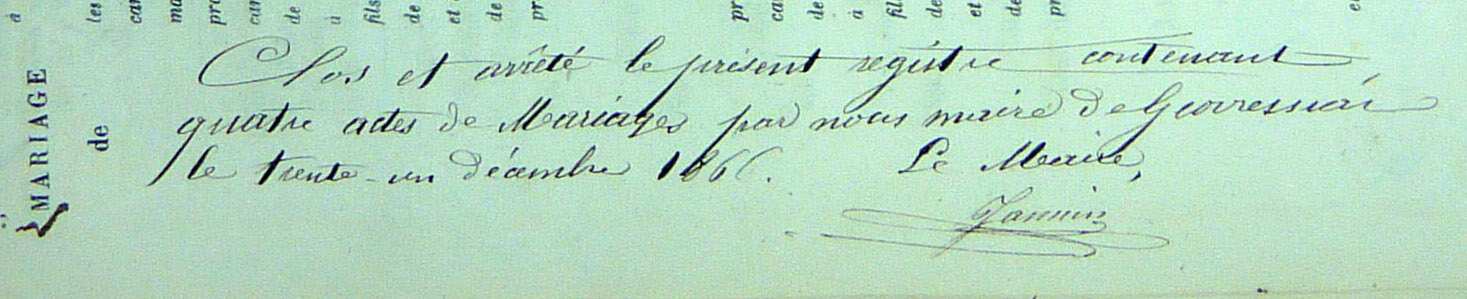 Clos et arrêté le présent registre contenant
quatre actes de Mariages par nous maire de Gevressiat
le trente-un décembre 1866.
Le Maire,
Jannin
MARIAGE
de